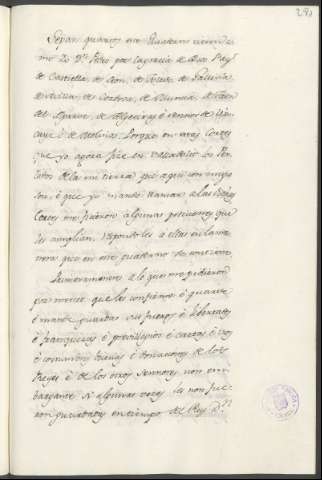 Sepan quantos este Quaderno vieren co
mo Yo Dn. Pedro por la gracia de Dios Rey
de Castiella de Leon, de Toledo de Gallicia,
de Sevilla de Cordova, de Murcia, de Jaen
del Algarve, de Algecira, é sennor de Viz
caya é de Molina. Porque en estas Cortes
que yo agora fize en Valladolit los Per
lados de la mi tierra que aqui son
é que yo mandé llamar á las dichas
Cortes me ficieron algunas peticiones que
les cumplian, respondoles a ellas en la ma
nera que en este quaderno se contiene
Primeramente a lo que me pidieron
por merced que les confirmase é guarde
é mande guardar sus fueros é libertades
é franquezas é previllegios é cartas é usos
é costumbres buenas é donaciones de los
Reyes é de los otros Sennores non em
bargante si algunas veces les non fue
ron guardados en tiempo del Rey Dn